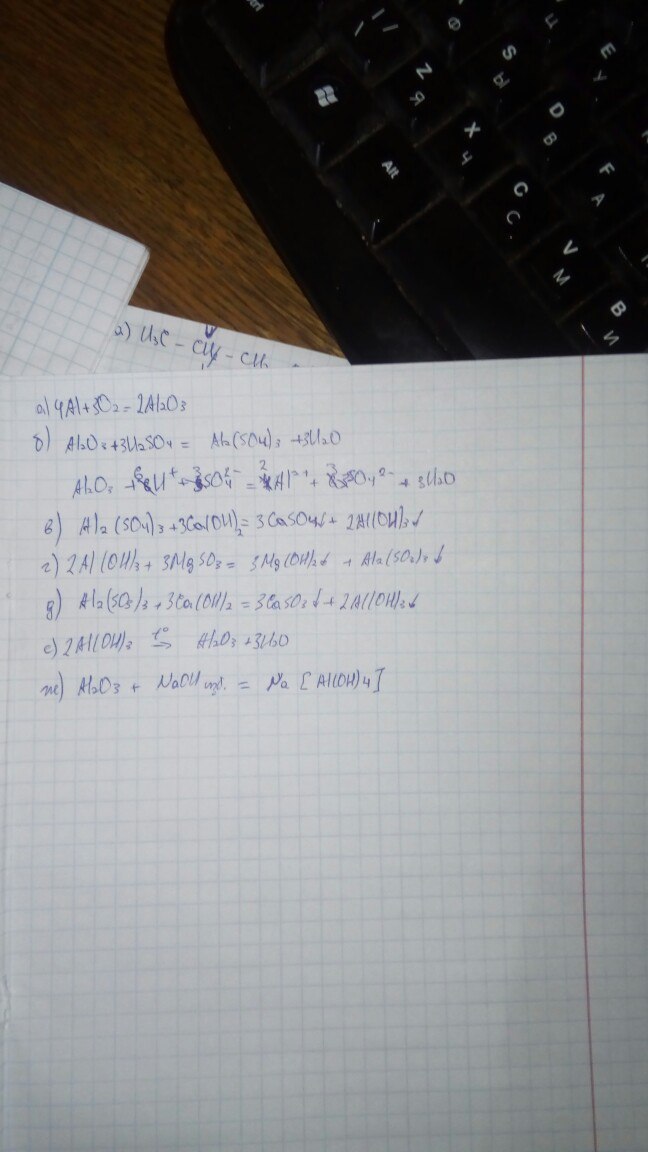 Z Я
S Ы
E У
Ф
Ц
X Ч
D В
F А
Alt
C С
V М
B И
а) H₃C - CH - CH₂
а) 4Al+3O₂ = 2Al₂O₃
б) Al₂O₃+3H₂SO₄ = Al₂(SO₄)₃ +3H₂O
Al₂O₃ + 6H⁺ + 3SO₄²⁻ = 2Al³⁺ + 3SO₄²⁻ + 3H₂O
в) Al₂(SO₄)₃ +3Ca(OH)₂ = 3CaSO₄↓ + 2Al(OH)₃↓
г) 2Al(OH)₃ + 3MgSO₃ = 3Mg(OH)₂↓ + Al₂(SO₃)₃↓
д) Al₂(SO₃)₃ + 3Ca(OH)₂ = 3CaSO₃↓ + 2Al(OH)₃↓
е) 2Al(OH)₃ t° → Al₂O₃ +3H₂O
ж) Al₂O₃ + NaOH изб. = Na [Al(OH)4]